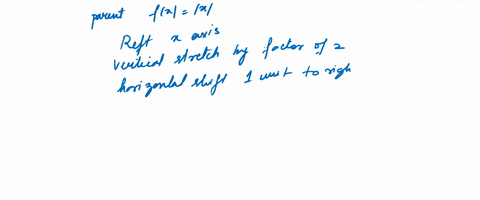 parent f(x) = |x|
Reft x axis
vertical stretch by factor of 2
horizontal shift 1 unit to righ